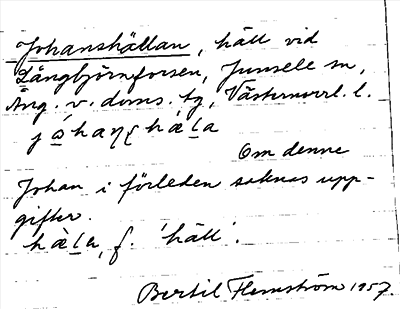 Johanshällan, häll vid
Långbjörnforsen, Junsele sn,
Ång. v. doms. tg, Västernorrl. l.
Om denne
Johan i förleden saknas upp-
gifter.
hàla, f. 'häll'.
Bertil Flemström 1957.